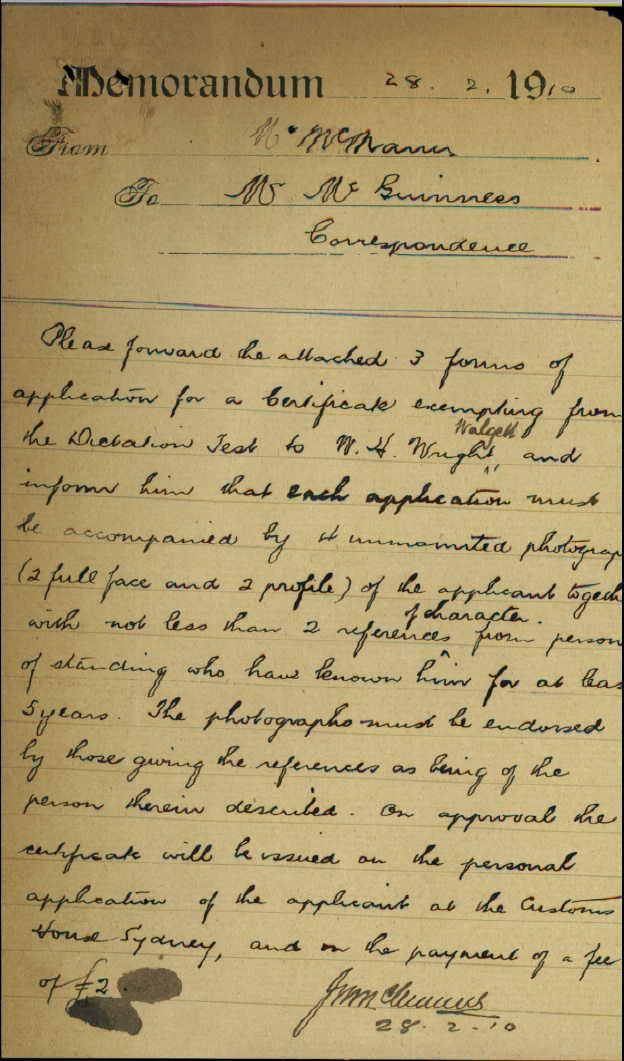 Memorandum 28. 2. 1910
From Mr
To Mr McGuinness
Correspondence
Please forward the attached 3 forms of
application for a Certificate exempting from
Walgett
the Dictation Test to W. H. Wright, and
inform him that each application must
be accompanied by 4 unmounted photograp
(2 full face and 2 profile) of the applicant togeth
of character.
with not less than 2 references from person
of standing who have known him for at leas
5 years. The photographs must be endorsed
by those giving the references as being of the
person therein described. On approval the
certificate will be issued on the personal
application of the applicant at the Customs
House Sydney, and on the payment of a fee
of £2
28-2-10